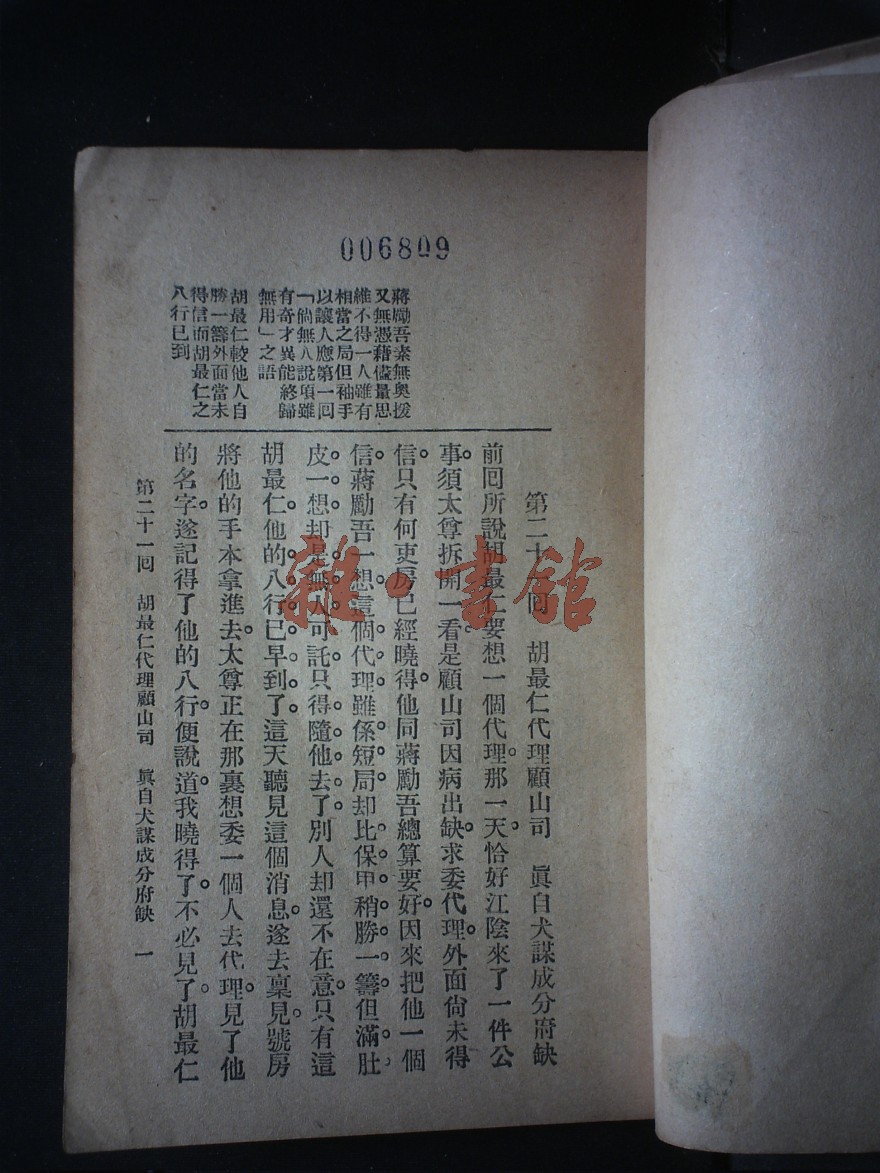 006809
蔣勵吾素無奧援
又無憑藉儘量思
維不得一人雖有
相當之局但袖手
以讓人應第一回
「倘無人說項雖
有奇才異能終歸
無用」之語
胡最仁較他人自
勝一籌外面當未
得信而胡最仁之
八行已到
第二十一回 胡最仁代理顧山司 眞自犬謀成分府缺
前回所說胡最仁要想一個代理。那一天。恰好江陰來了一件公
事。須太尊拆開一看。是顧山司因病出缺。求委代理。外面尙未得
信。只有何吏房已經曉得。他同蔣勵吾總算要好。因來把他一個
信。蔣勵吾一想。這個代理。雖係短局。却比保甲稍勝一籌。但滿肚
皮一想。却是無人可託。只得隨他去了。別人却還不在意。只有這
胡最仁。他的八行。已早到了。這天聽見這個消息。遂去稟見。號房
將他的手本拿進去。太尊正在那裏想委一個人去代理。見了他
的名字。遂記得了他的八行。便說道。我曉得了。不必見了。胡最仁
第二十一回 胡最仁代理顧山司 眞自犬謀成分府缺 一
雜·書館